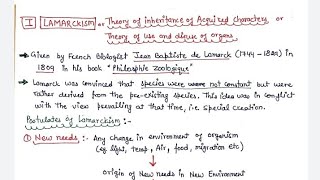 I LAMARCKISM or Theory of inheritance of Acquired characters or
Theory of use and disuse of organs
→ Given by French biologist Jean Baptiste de Lamarck (1744-1829) in
1809 in his book "Philosophie Zoologique"
→ Lamarck was convinced that species were not constant but were
rather derived from the pre-existing species. This idea was in conflict
with the view prevailing at that time, i.e. special creation.
Postulates of Lamarckism :-
① New needs :- Any change in environment of organism
(eg light, temp, Air, food, migration etc)
↓
Origin of New needs in New Environment